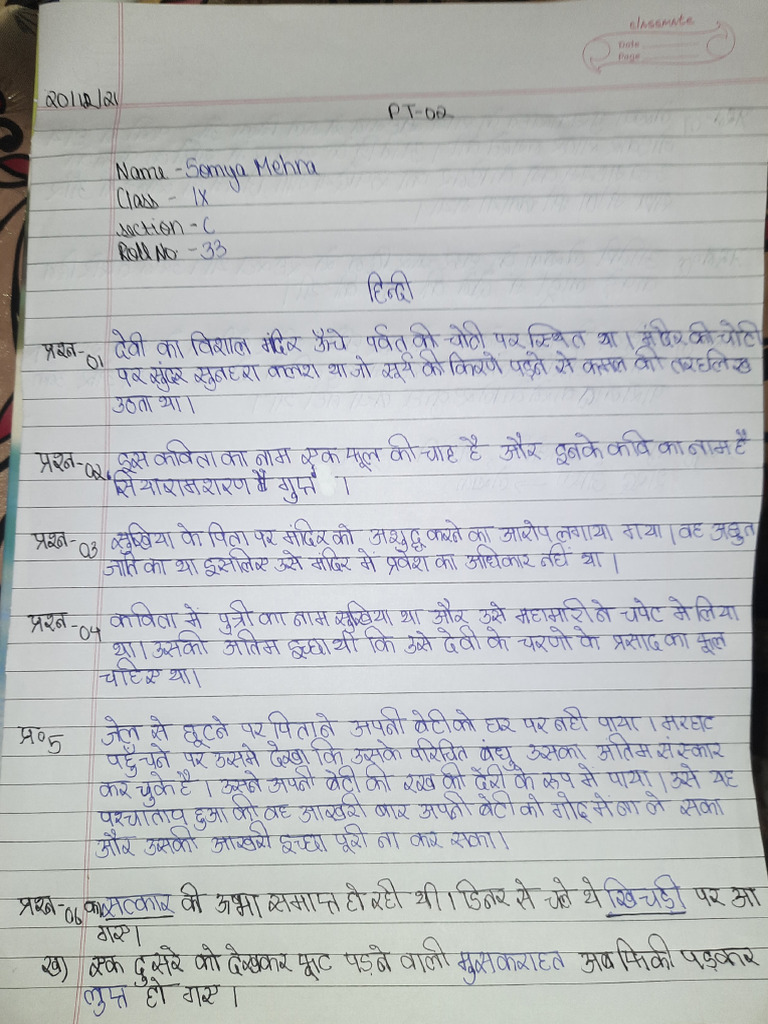 classmate
Date
Page
20/12/21
PT-02
Name - Somya Mehra
Class - IX
section - C
Roll No - 33
हिन्दी
प्रश्न-01 देवी का विशाल मंदिर ऊँचे पर्वत की चोटी पर स्थित था। मंदिर की चोटी
पर सुंदर सुनहरा कलश था जो सूर्य की किरणे पड़ने से कमल की तरह खिल
उठता था।
प्रश्न-02. इस कविता का नाम एक फूल की चाह है और इनके कवि का नाम है
सियारामशरण गुप्त ।
प्रश्न-03 सुखिया के पिता पर मंदिर को अशुद्ध करने का आरोप लगाया गया। वह अछुत
जाति का था इसलिए उसे मंदिर में प्रवेश का अधिकार नहीं था।
प्रश्न-04 कविता में पुत्री का नाम सुखिया था और उसे महामारी ने चपेट मे लिया
था। उसकी अंतिम इच्छा थी कि उसे देवी के चरणो के प्रसाद का फूल
चाहिए था।
प्र०5 जेल से छूटने पर पिता ने अपनी बेटी को घर पर नही पाया। मरघट
पहुँचने पर उसने देखा कि उसके परिचित बंधु उसका अंतिम संस्कार
कर चुके है। उसने अपनी बेटी को राख की ढेरी के रूप मे पाया। उसे यह
पश्चाताप हुआ की वह आखरी बार अपनी बेटी को गोद में ना ले सका
और उसकी आखरी इच्छा पूरी ना कर सका।
प्रश्न-06 क) सत्कार की ऊष्मा समाप्त हो रही थी। डिनर से चले थे खिचड़ी पर आ
गए।
ख) एक दुसरे को देखकर फूट पड़ने वाली मुसकराहत अब फिकी पड़कर
लुप्त हो गए।